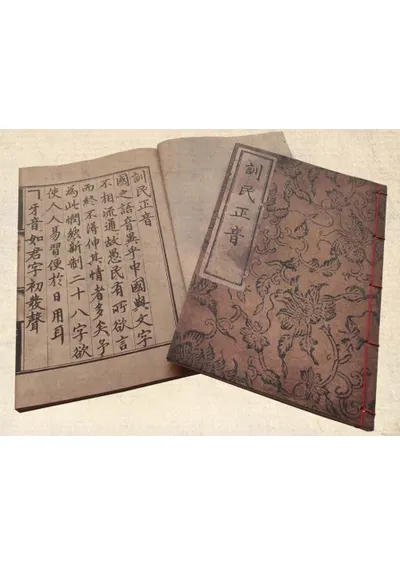 訓民正音
國之語音異乎中國與文字
不相流通故愚民有所欲言
而終不得伸其情者多矣予
為此憫然新制二十八字欲
使人人易習便於日用耳
ㄱ牙音如君字初發聲
訓民正音